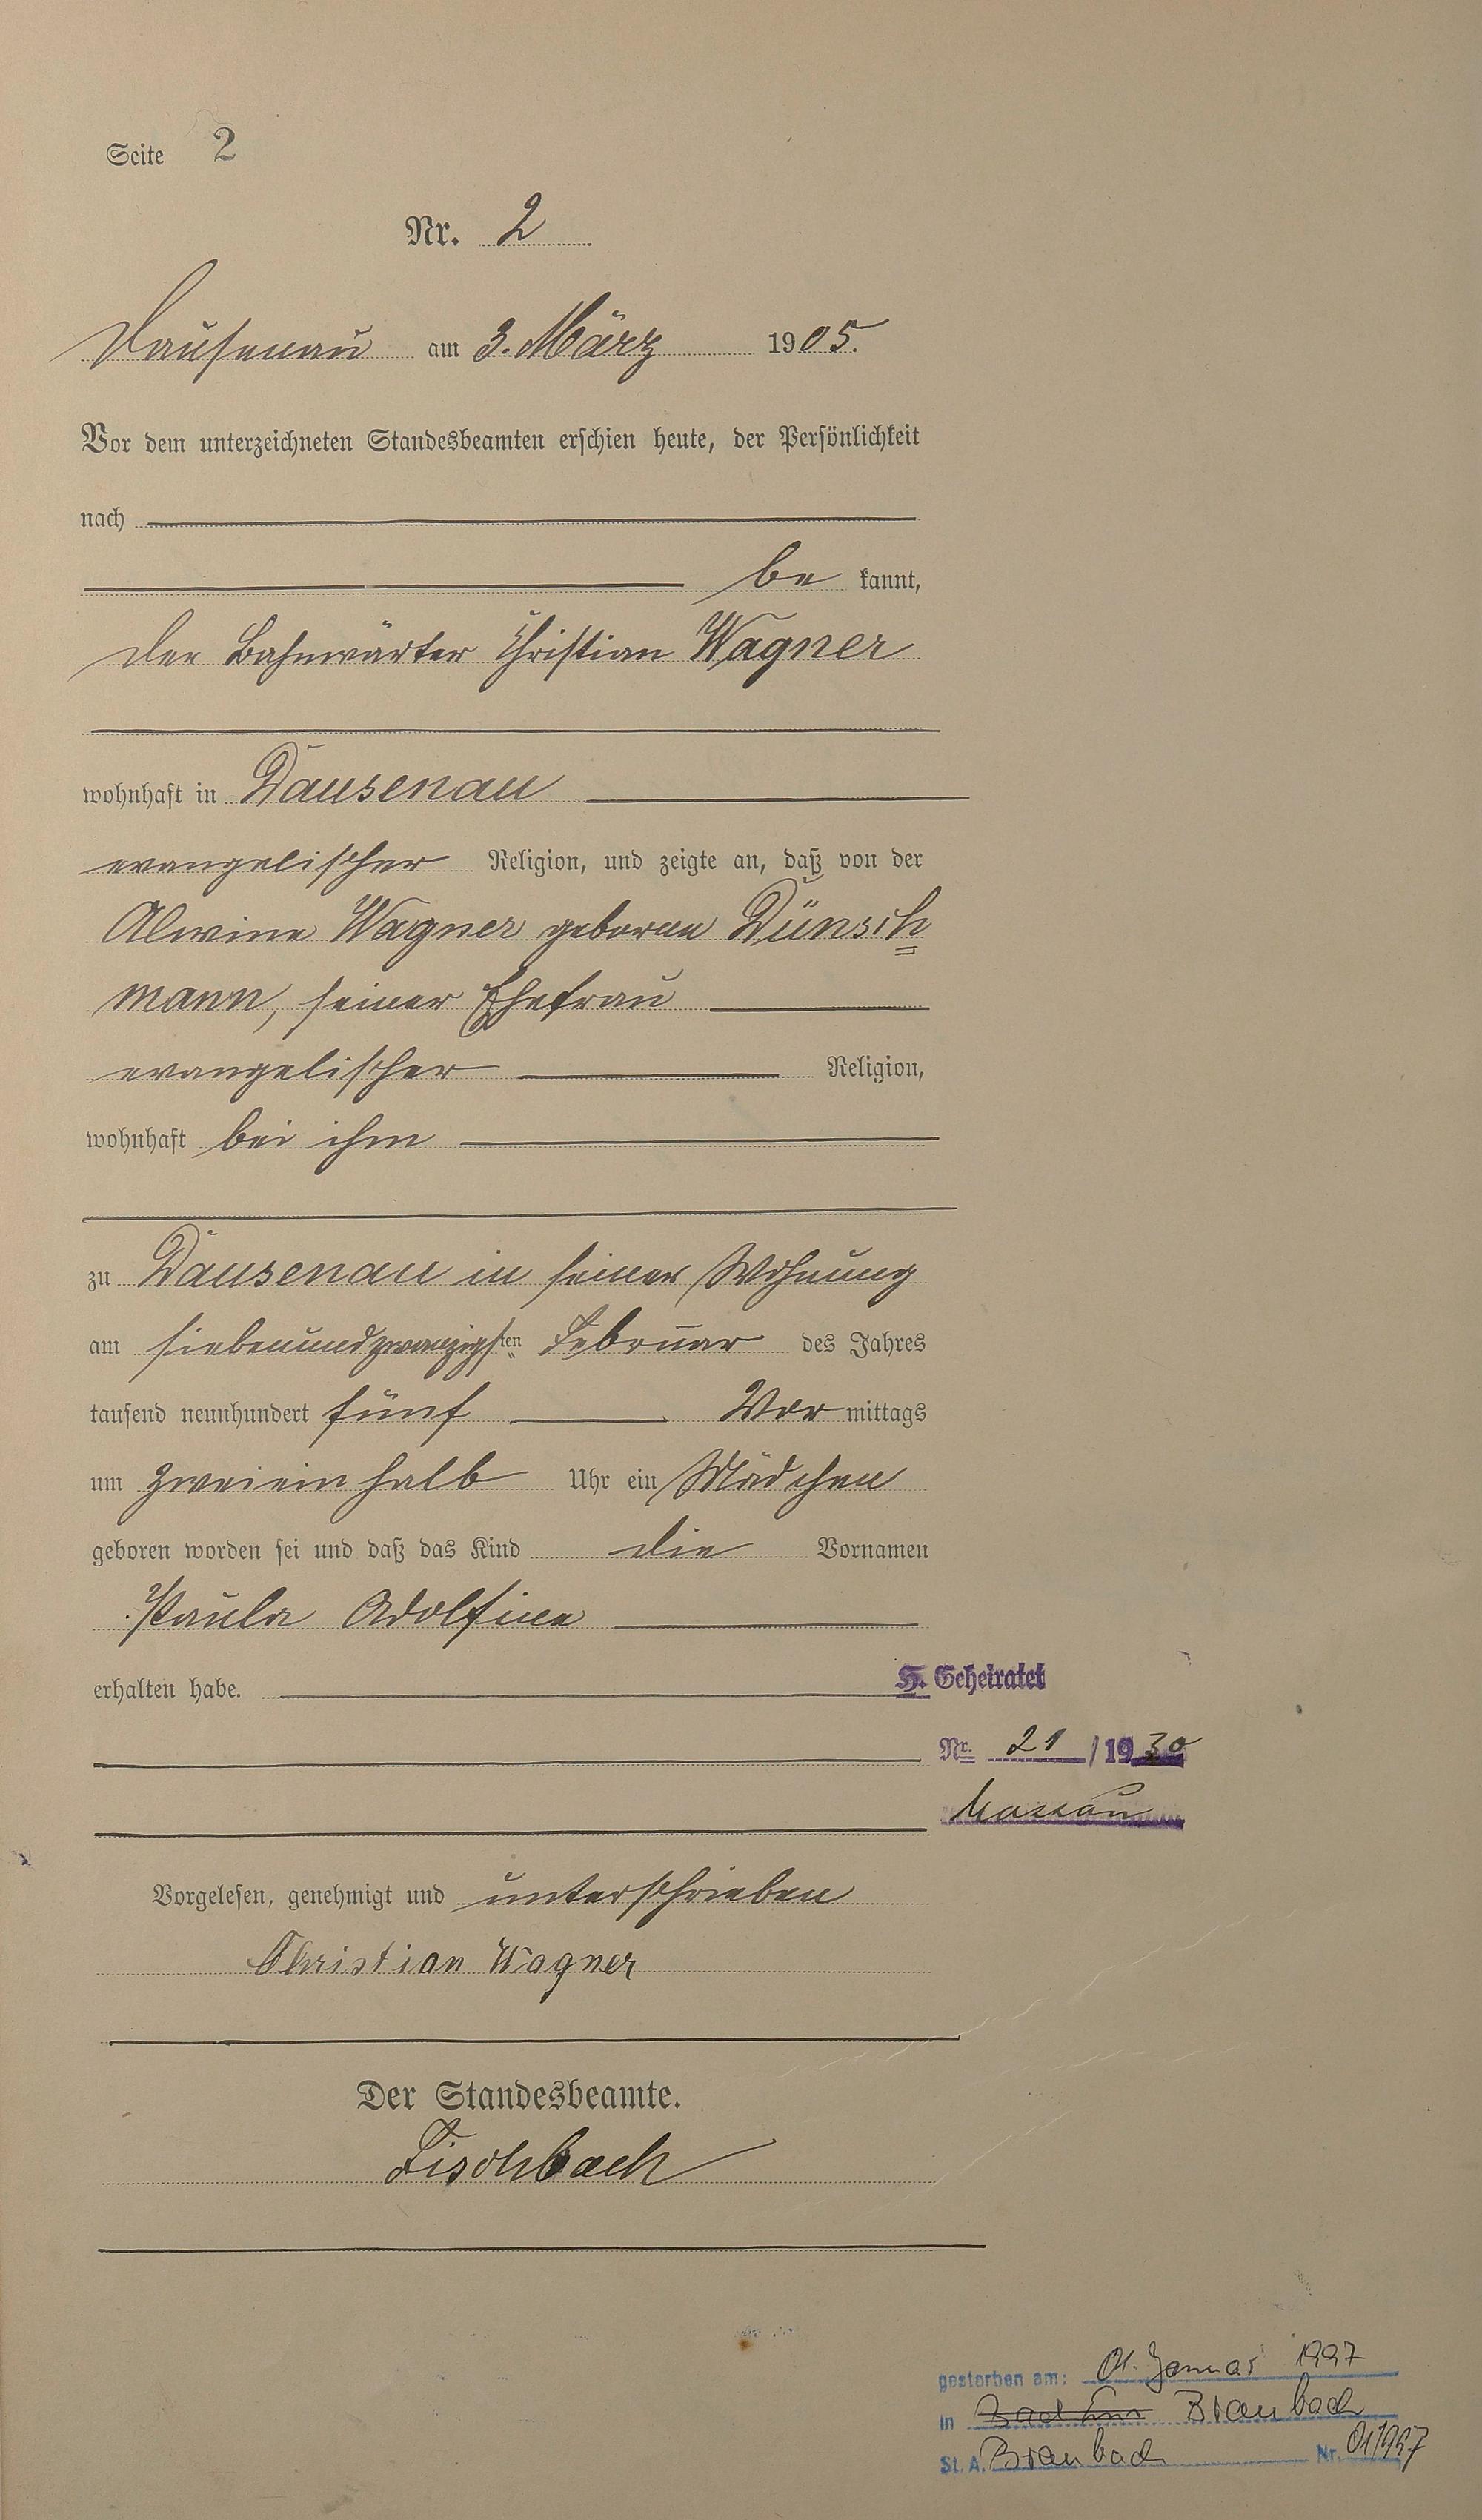 Seite 2
Nr. 2
Dausenau am 3. März 1905.
Vor dem unterzeichneten Standesbeamten erschien heute, der Persönlichkeit
nach
be kannt,
der Bahnwärter Christian Wagner
wohnhaft in Dausenau
evangelischer Religion, und zeigte an, daß von der
Alwine Wagner geborne Dünsch=
mann, seiner Ehefrau
evangelischer Religion,
wohnhaft bei ihm
zu Dausenau in seiner Wohnung
am siebenundzwanzigsten Februar des Jahres
tausend neunhundert fünf Vor mittags
um zweieinhalb Uhr ein Mädchen
geboren worden sei und daß das Kind die Vornamen
Paula Adolfine
erhalten habe.
H. Geheiratet
Nr. 21 / 1930
Nassau
Vorgelesen, genehmigt und unterschrieben
Christian Wagner
Der Standesbeamte.
Fischbach
gestorben am: 01. Januar 1997
in Bad Ems Braubach
St. A. Braubach Nr. 01/1997